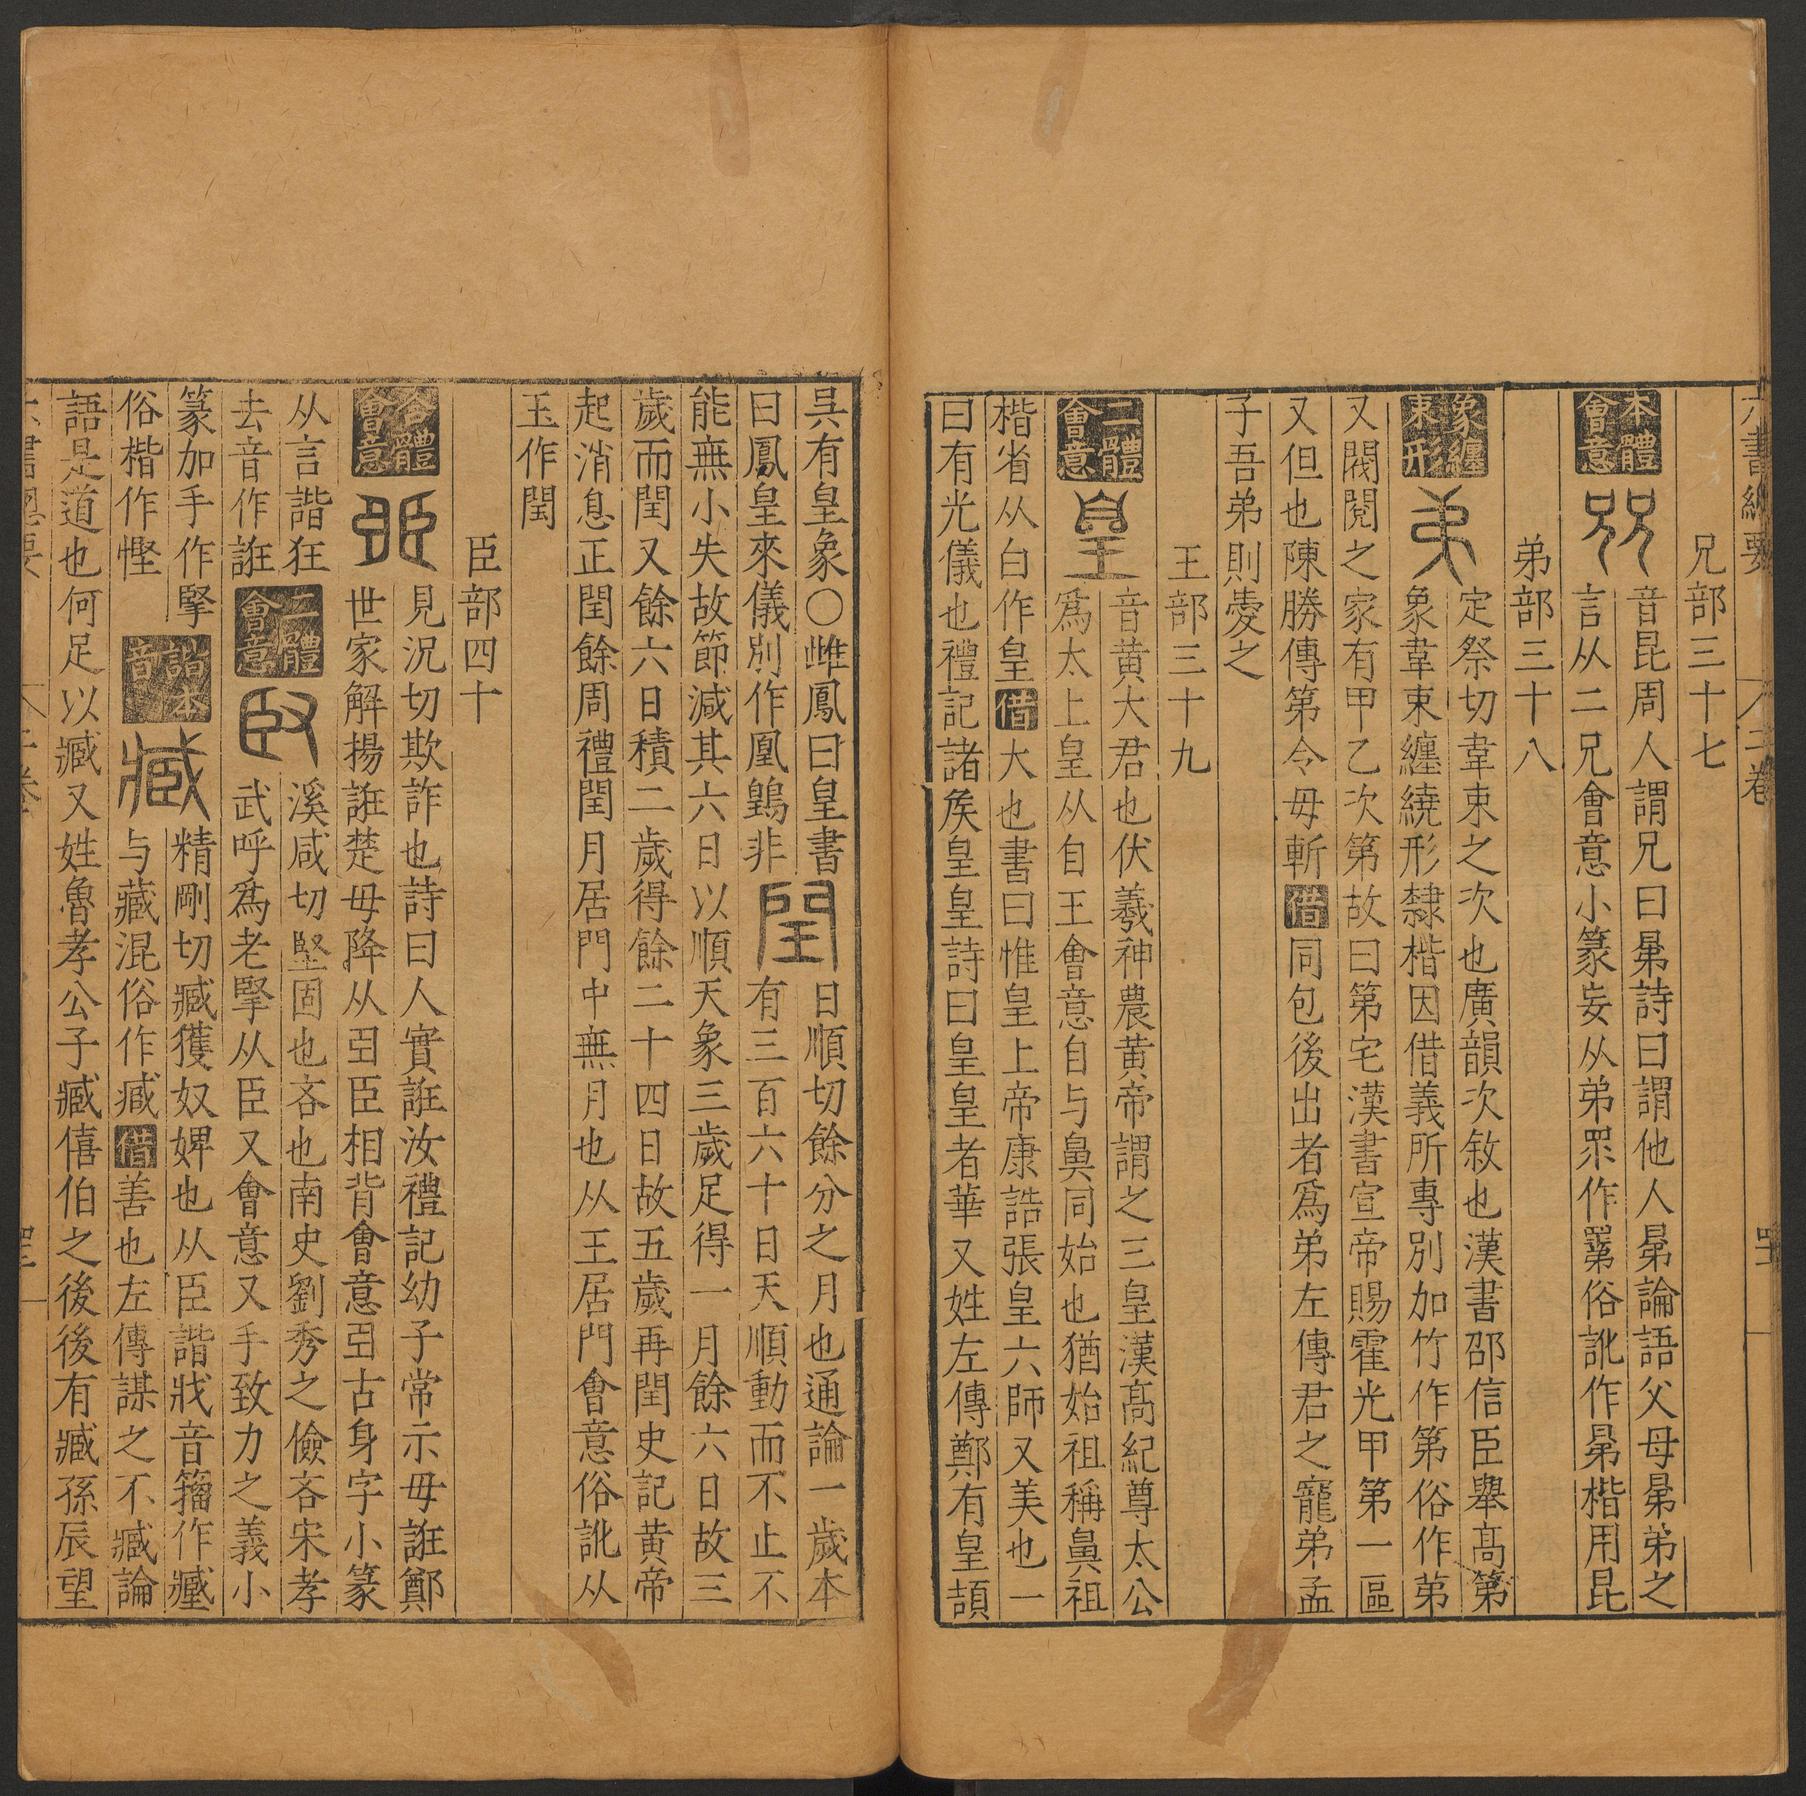 兄部三十七
本體會意
音昆周人謂兄曰晜詩曰謂他人晜論語父母晜弟之
言从二兄會意小篆妄从弟眔作䍜俗訛作晜楷用昆
弟部三十八
象纏束形
定祭切韋束之次也廣韻次敘也漢書邵信臣舉髙第
象韋束纏繞形隸楷因借義所專別加竹作第俗作苐
又閥閱之家有甲乙次第故曰第宅漢書宣帝賜霍光甲第一區
又但也陳勝傳第令毋斬借同包後出者爲弟左傳君之寵弟孟
子吾弟則愛之
王部三十九
二體會意
音黄大君也伏羲神農黄帝謂之三皇漢髙紀尊太公
爲太上皇从自王會意自与鼻同始也猶始祖稱鼻祖
楷省从白作皇借大也書曰惟皇上帝康誥張皇六師又美也一
曰有光儀也禮記諸矦皇皇詩曰皇皇者華又姓左傳鄭有皇頡
吳有皇象○雌鳳曰皇書
曰鳳皇來儀別作凰鷬非
閏
日順切餘分之月也通論一歲本
有三百六十日天順動而不止不
能無小失故節減其六日以順天象三歲足得一月餘六日故三
歲而閏又餘六日積二歲得餘二十四日故五歲再閏史記黄帝
起消息正閏餘周禮閏月居門中無月也从王居門會意俗訛从
玉作閏
臣部四十
各體會意
見況切欺詐也詩曰人實誑汝禮記幼子常示毋誑鄭
世家解揚誑楚毋降从𦣞臣相背會意𦣞古身字小篆
从言諧狂
去音作誑
二體會意
臤
溪咸切堅固也吝也南史劉秀之儉吝宋孝
武呼爲老掔从臣又會意又手致力之義小
篆加手作掔
俗楷作慳
諧本音
臧
精剛切臧獲奴婢也从臣諧戕音籀作𡒉
与藏混俗作臧借善也左傳謀之不臧論
語是道也何足以臧又姓魯孝公子臧僖伯之後後有臧孫辰望